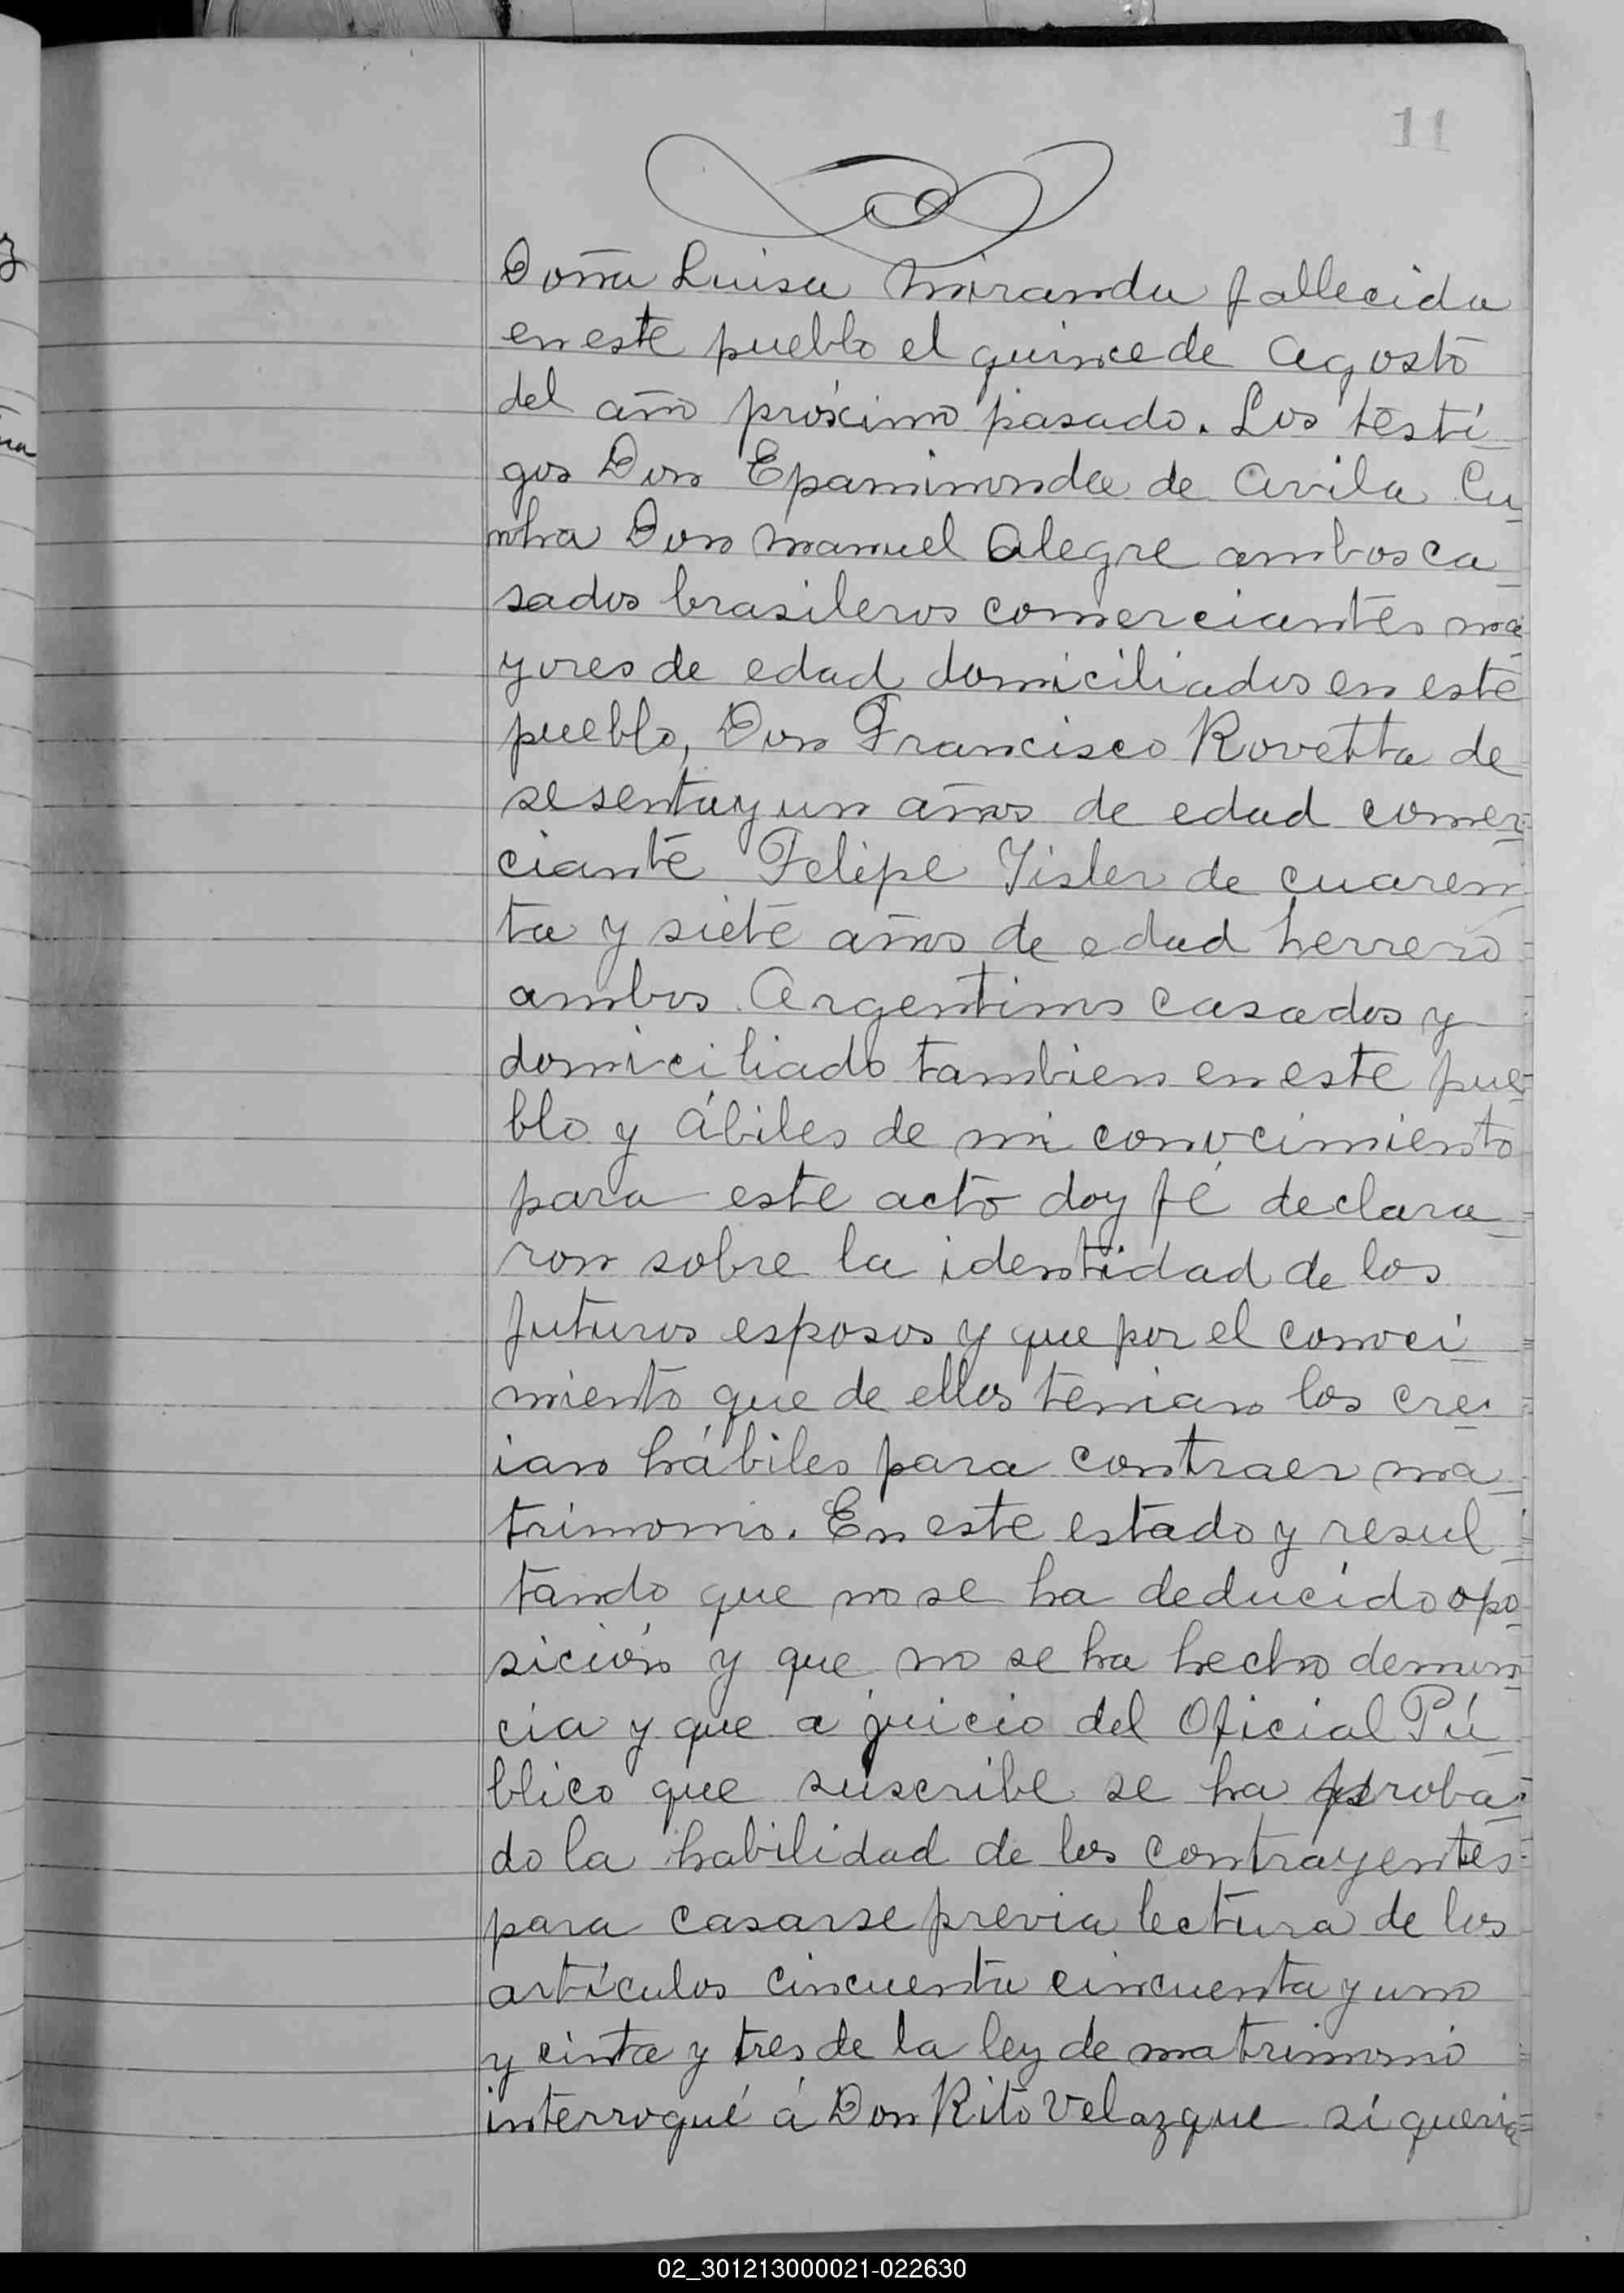 11
Doña Luisa Miranda fallecida
en este pueblo el quince de Agosto
del año próximo pasado. Los testi
gos Don Epaminonda de Avila Cu
nha Don Manuel Alegre ambos ca
sados brasileros comerciantes ma
yores de edad domiciliados en este
pueblo, Don Francisco Rovetta de
sesenta y un años de edad comer
ciante Felipe Yisler de cuaren
ta y siete años de edad herrero
ambos Argentinos casados y
domiciliado tambien en este pue
blo y ábiles de mi conocimiento
para este acto doy fé declara
ron sobre la identidad de los
futuros esposos y que por el conoci
miento que de ellos tenian los cre
ian hábiles para contraer ma
trimonio. En este estado y resul
tando que no se ha deducido opo
sición y que no se ha hecho denun
cia y que a juicio del Oficial Pú
blico que suscribe se ha proba
do la habilidad de los contrayentes
para casarse previa lectura de los
artículos cincuenta cincuenta y uno
y cinta y tres de la ley de matrimonio
interrogué á Don Rito Velazque si queria
02_301213000021-022630